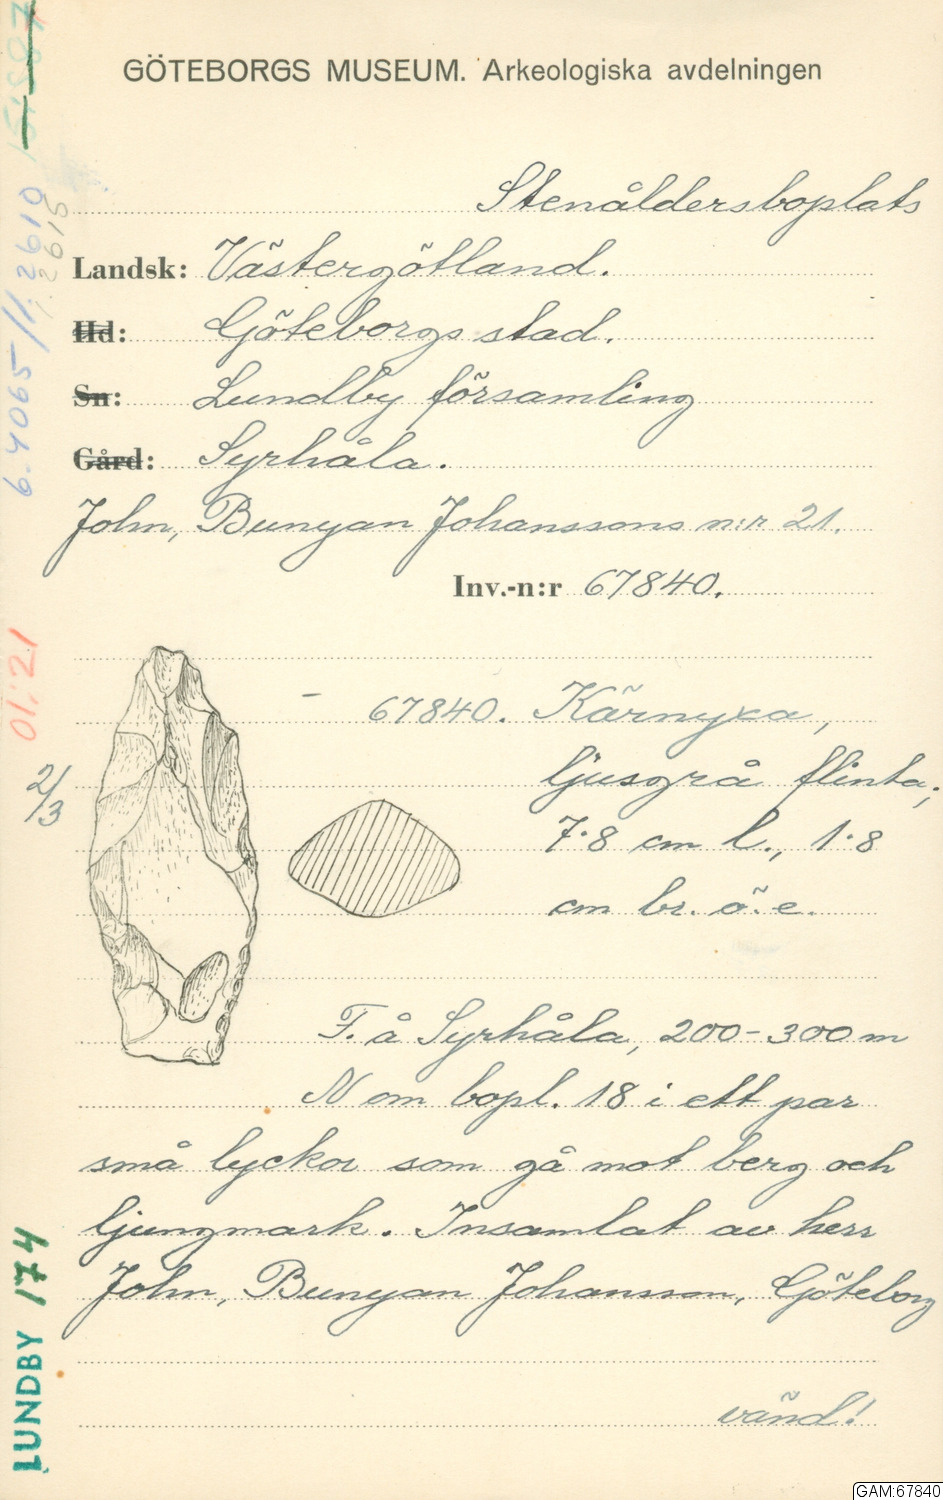 GÖTEBORGS MUSEUM. Arkeologiska avdelningen
Stenåldersboplats
Landsk: Västergötland.
Hd: Göteborgs stad.
Sn: Lundby församling
Gård: Syrhåla.
John, Bunyan Johanssons n:r 21.
Inv.-n:r 67840.
67840. Kärnyxa,
ljusgrå flinta;
7.8 cm l., 1.8
cm br. ö. e.
F. å Syrhåla, 200-300 m
N om bopl. 18 i ett par
små lyckor som gå mot berg och
ljungmark. Insamlat av herr
John, Bunyan Johansson, Göteborg
vänd!
2/3
01:21
6.4065/1.2610
1.2615
LUNDBY 174
GAM:67840